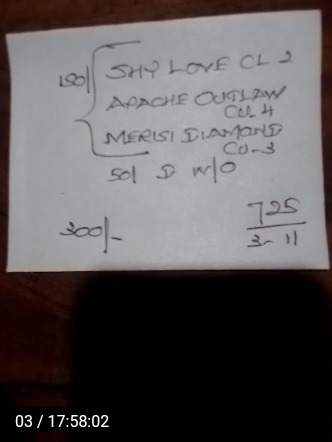 150/ SHY LOVE CL 2
APACHE OUTLAW
CU. 4
MERISI DIAMOND
CU-3
50/ D W/O
300/-
725
3-11
03 / 17:58:02